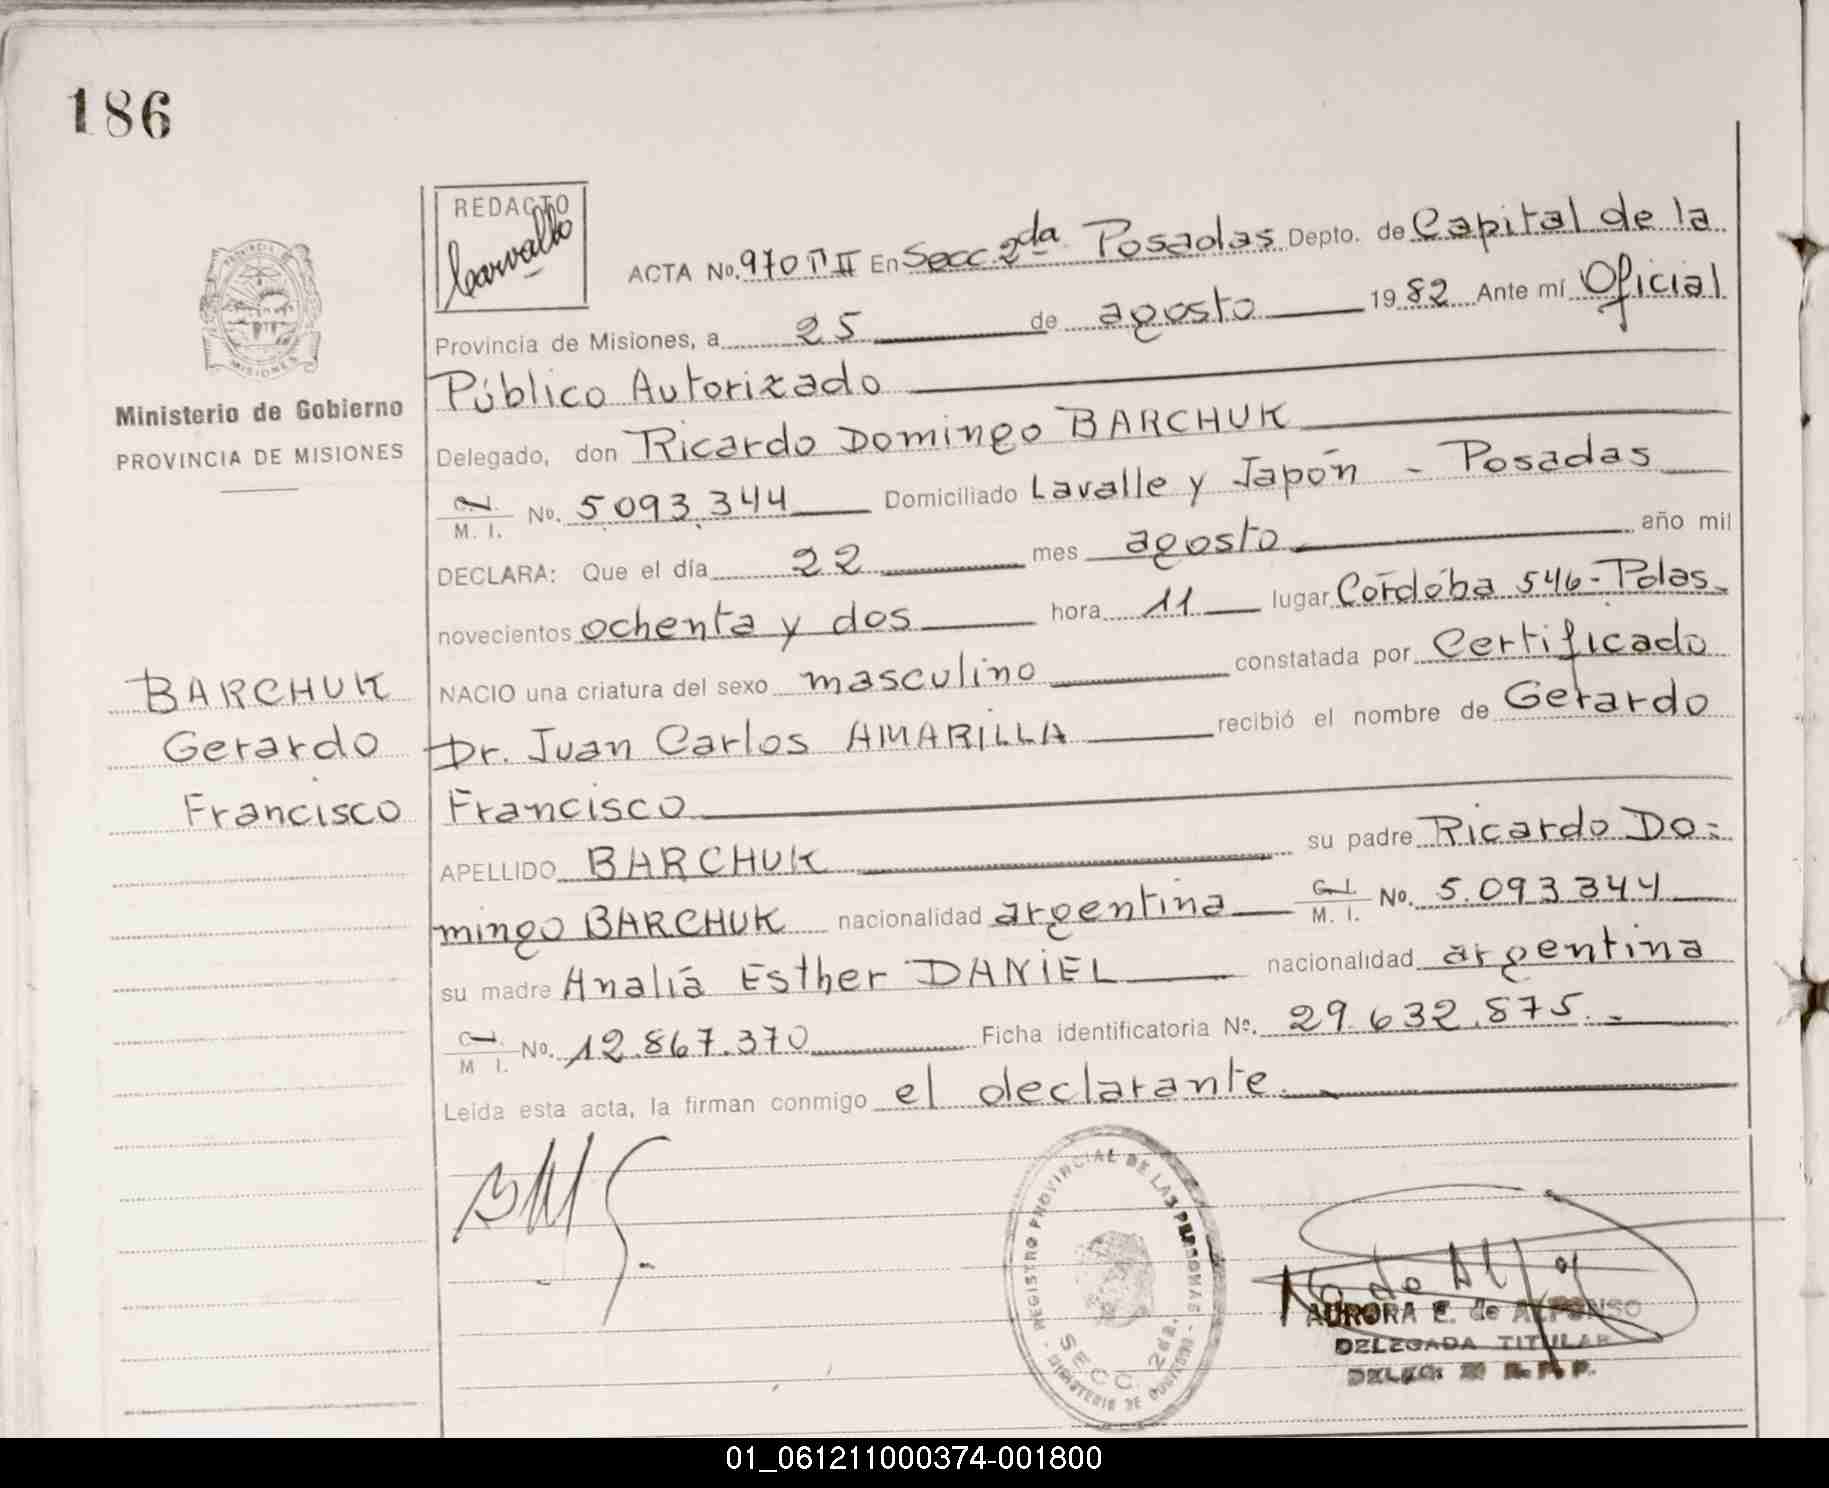 186
REDACTO
Carvallo
ACTA No. 970 TºII En Secc. 2da Posadas Depto. de Capital de la
Provincia de Misiones, a 25 de agosto 1982 Ante mí Oficial
Público Autorizado
Ministerio de Gobierno
PROVINCIA DE MISIONES
Delegado, don Ricardo Domingo BARCHUK
M. I. No. 5.093.344 Domiciliado Lavalle y Japón - Posadas
DECLARA: Que el día 22 mes agosto año mil
novecientos ochenta y dos hora 11 lugar Córdoba 546-Pdas.
BARCHUK
Gerardo
Francisco
NACIO una criatura del sexo masculino constatada por Certificado
Dr. Juan Carlos AMARILLA recibió el nombre de Gerardo
Francisco
APELLIDO BARCHUK su padre Ricardo Do=
mingo BARCHUK nacionalidad argentina C. I. M. I. No. 5.093.344
su madre Analía Esther DANIEL nacionalidad argentina
M I. No. 12.867.370 Ficha identificatoria Nº. 29.632.875.-
Leída esta acta, la firman conmigo el declarante.
REGISTRO PROVINCIAL DE LAS PERSONAS
SECC. 2da.
MINISTERIO DE GOBIERNO
AURORA E. de ALFONSO
DELEGADA TITULAR
01_061211000374-001800